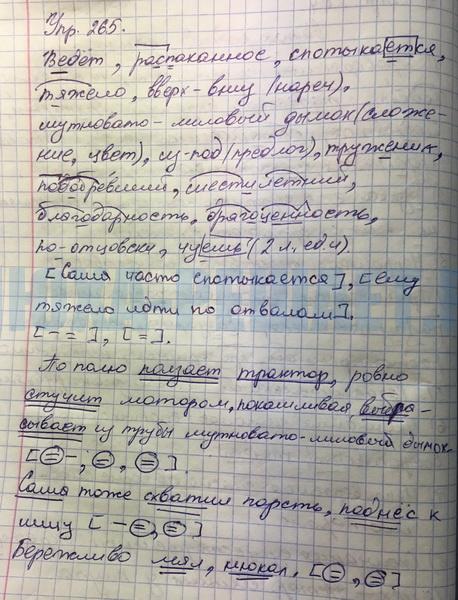 Упр. 265.
Ведёт, распаханное, спотыкается,
тяжело, вверх-вниз (нареч),
мутновато-лиловый дымок (сложе-
ние, цвет), из-под (предлог), труженик,
подобревший, шестилетний,
благодарность, драгоценность,
по-отцовски, чуешь (2 л., ед.ч)
[Саша часто спотыкается], [ему
тяжело идти по отвалам].
[- =], [=].
По полю ползает трактор, ровно
стучит мотором, покашливая, выбра-
сывает из трубы мутновато-лиловый дымок.
[=-, =, =].
Саша тоже схватил горсть, поднёс к
лицу [-=, =]
Бережливо мял, нюхал. [=, =]